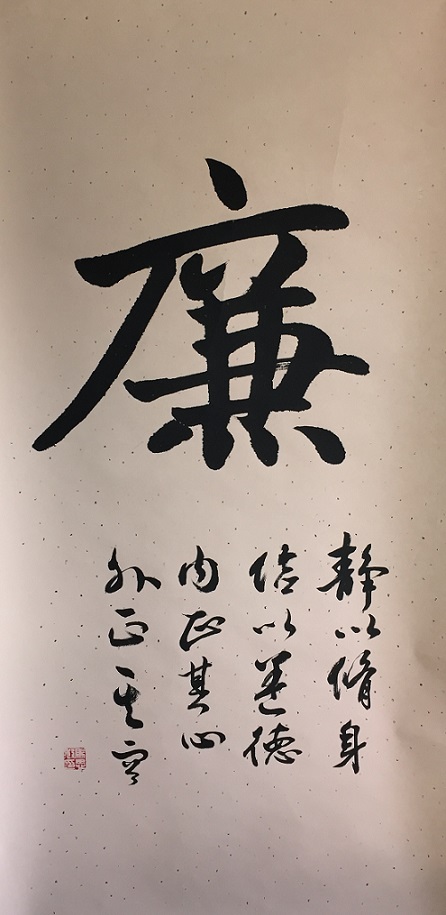 廉
静以脩身
俭以养德
内正其心
外正其容